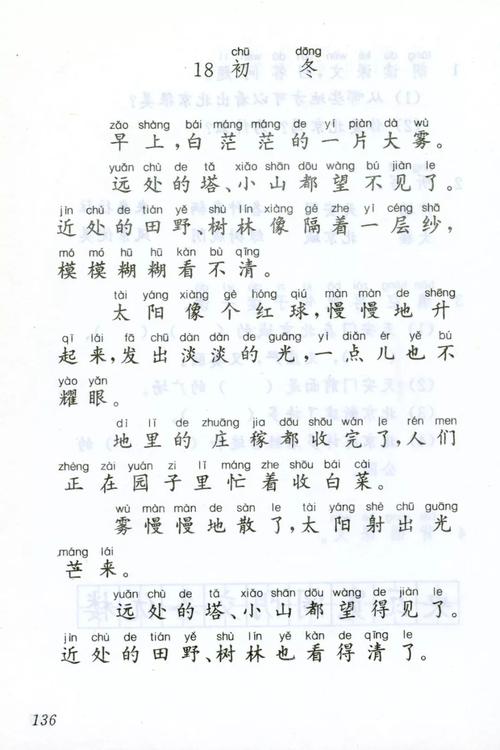 chū dōng
18 初 冬
zǎo shàng bái máng máng de yí piàn dà wù
早上,白茫茫的一片大雾。
yuǎn chù de tǎ xiǎo shān dōu wàng bú jiàn le
远处的塔、小山都望不见了。
jìn chù de tián yě shù lín xiàng gé zhe yì céng shā
近处的田野、树林像隔着一层纱,
mó mó hú hú kàn bù qīng
模模糊糊看不清。
tài yáng xiàng gè hóng qiú màn màn de shēng
太阳像个红球,慢慢地升
qǐ lái fā chū dàn dàn de guāng yì diǎnr yě bú
起来,发出淡淡的光,一点儿也不
yào yǎn
耀眼。
dì lǐ de zhuāng jia dōu shōu wán le rén men
地里的庄稼都收完了,人们
zhèng zài yuán zi lǐ máng zhe shōu bái cài
正在园子里忙着收白菜。
wù màn màn de sàn le tài yáng shè chū guāng
雾慢慢地散了,太阳射出光
máng lái
芒来。
yuǎn chù de tǎ xiǎo shān dōu wàng de jiàn le
远处的塔、小山都望得见了。
jìn chù de tián yě shù lín yě kàn de qīng le
近处的田野、树林也看得清了。
136